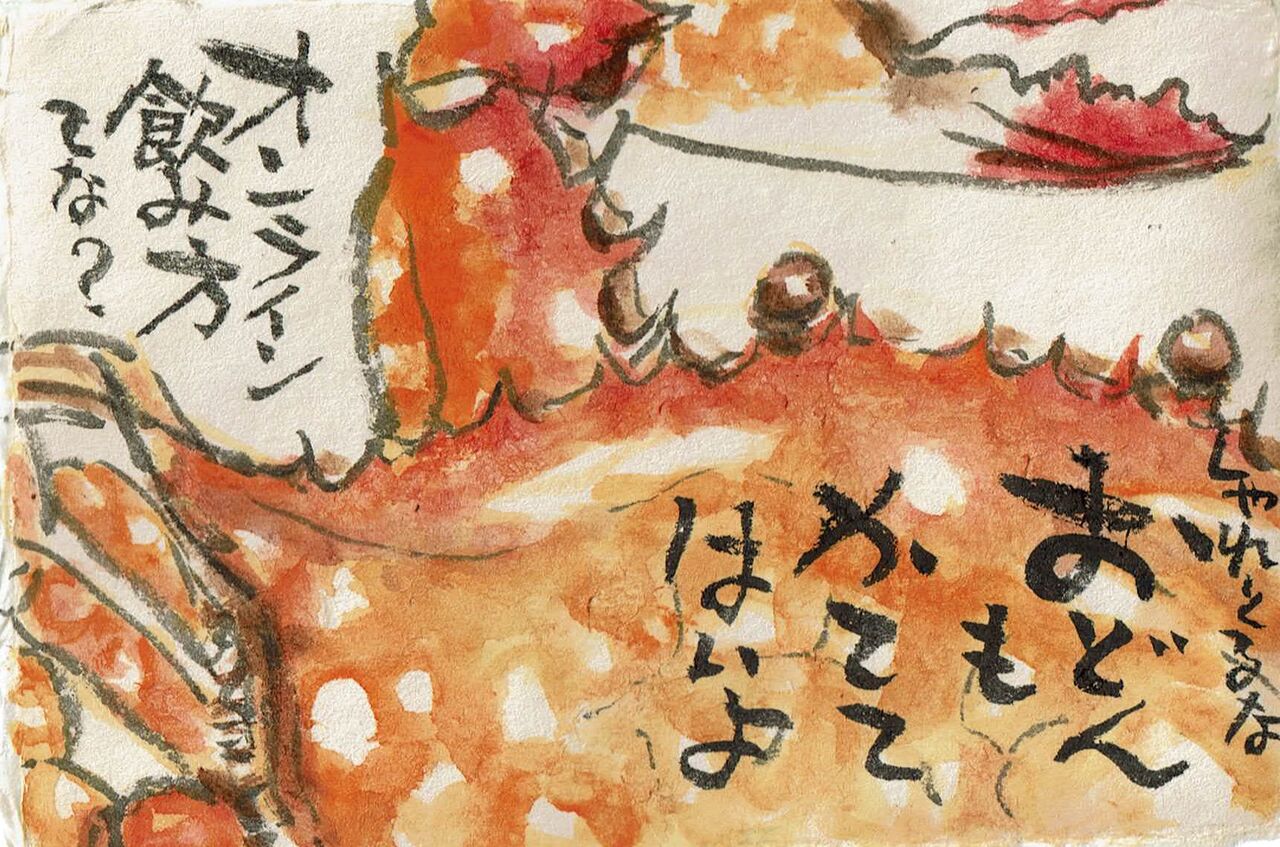 オンライン
飲み方
てな?
しゃれとるな
おどん
も
かてて
はいよ